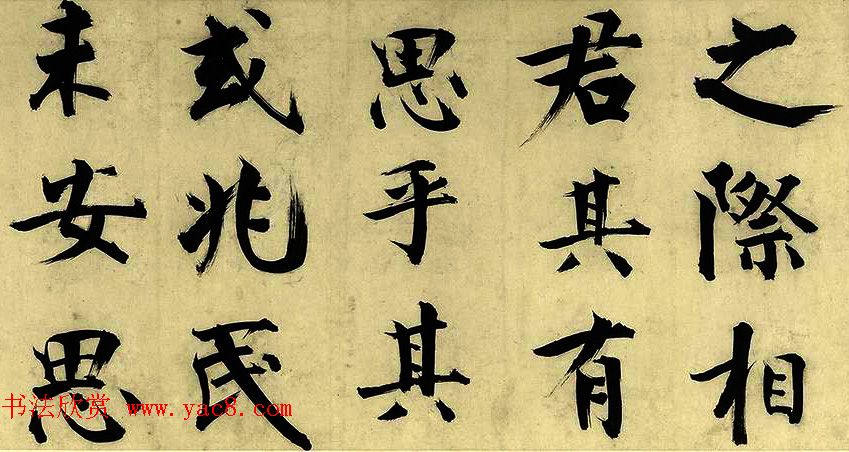 之際相
君其有
思乎其
或兆民
未安思
书法欣赏 www.yac8.com